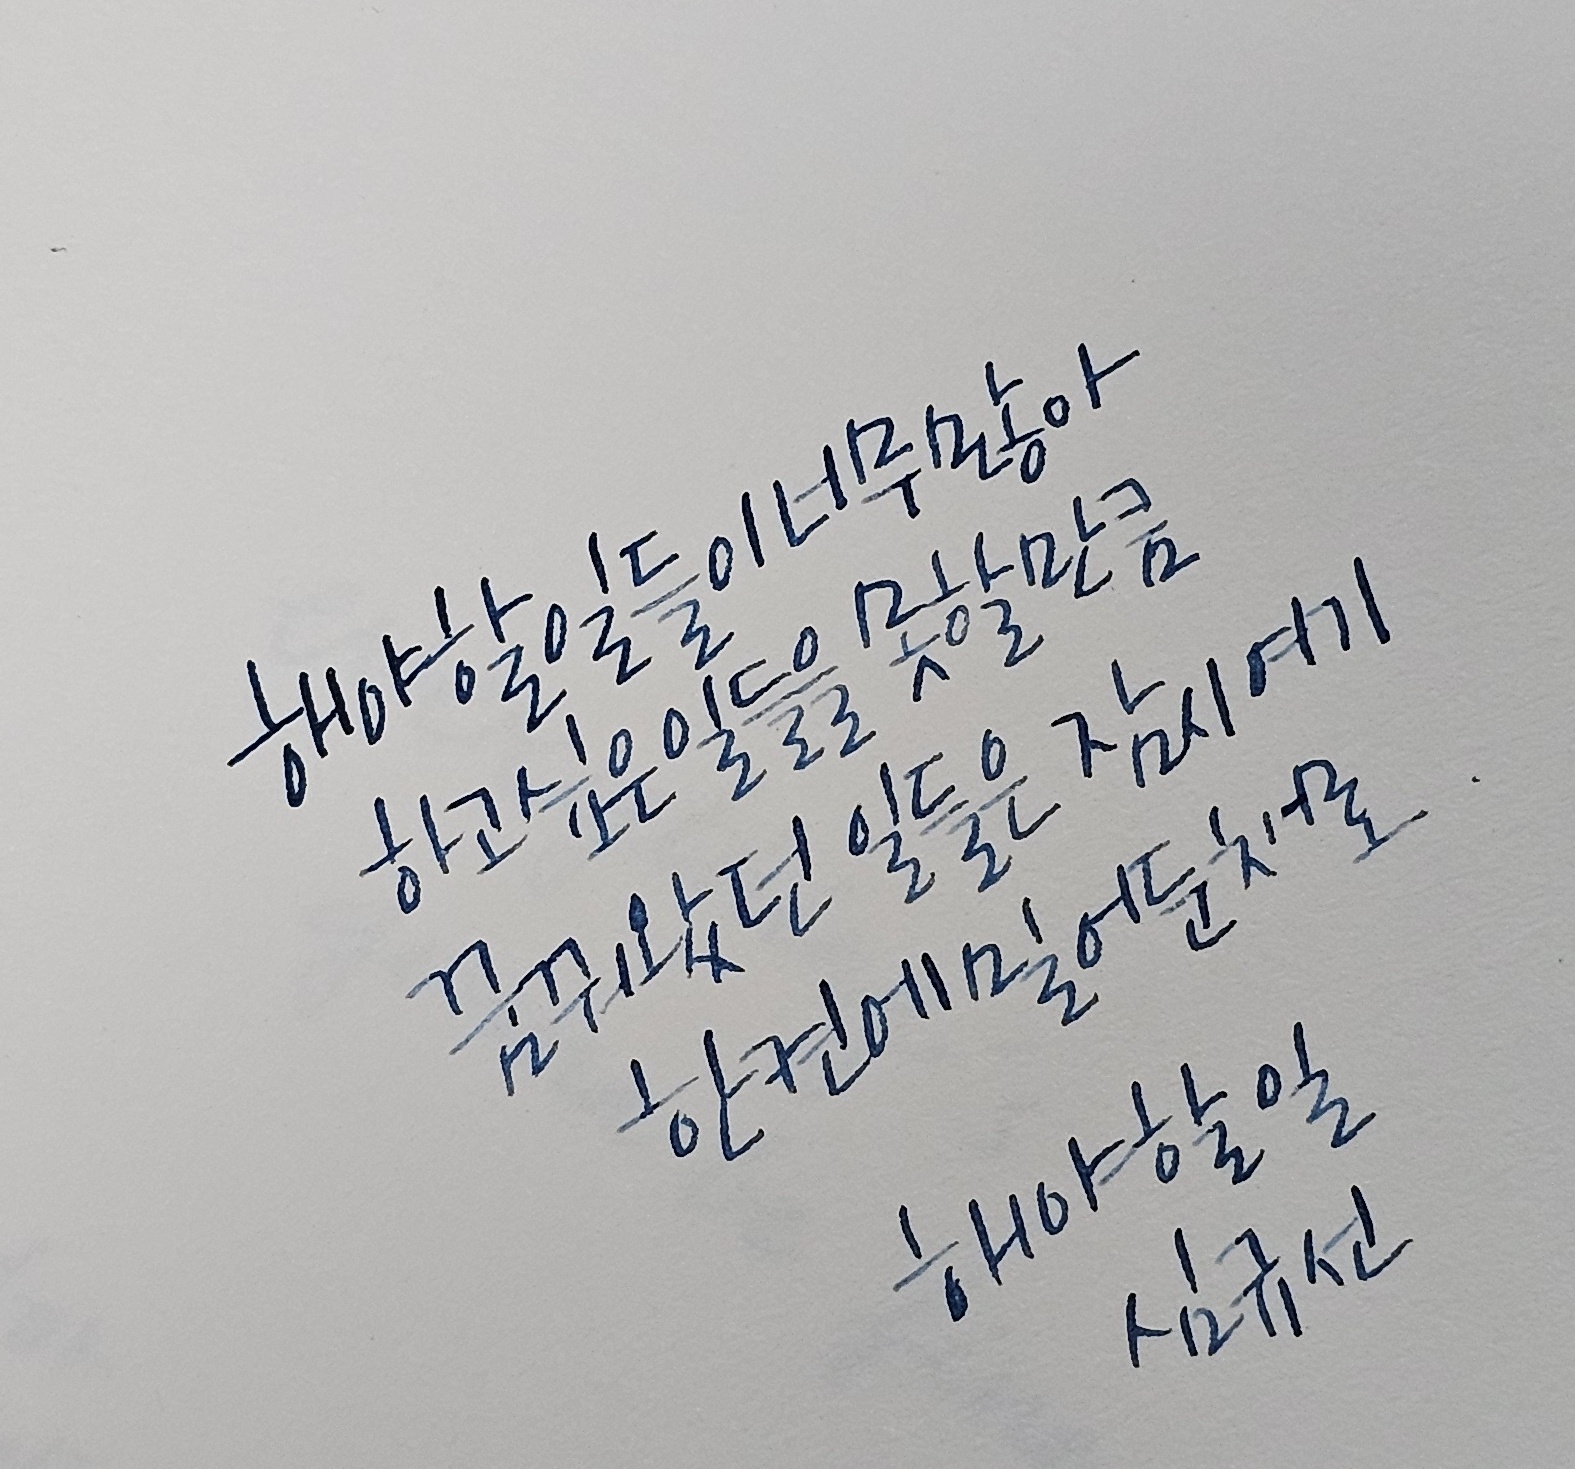 해야 할 일들이 너무 많아
하고 싶은 일들을 못할 만큼
꿈꿔왔던 일들은 잠시 여기
한켠에 밀어둔 채로
해야 할 일
심규선